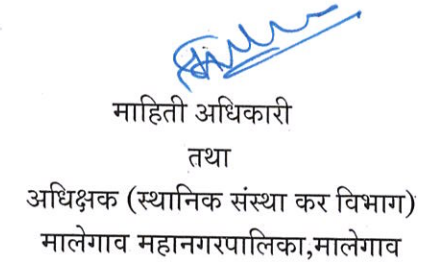 माहिती अधिकारी
तथा
अधिक्षक (स्थानिक संस्था कर विभाग)
मालेगाव महानगरपालिका,मालेगाव